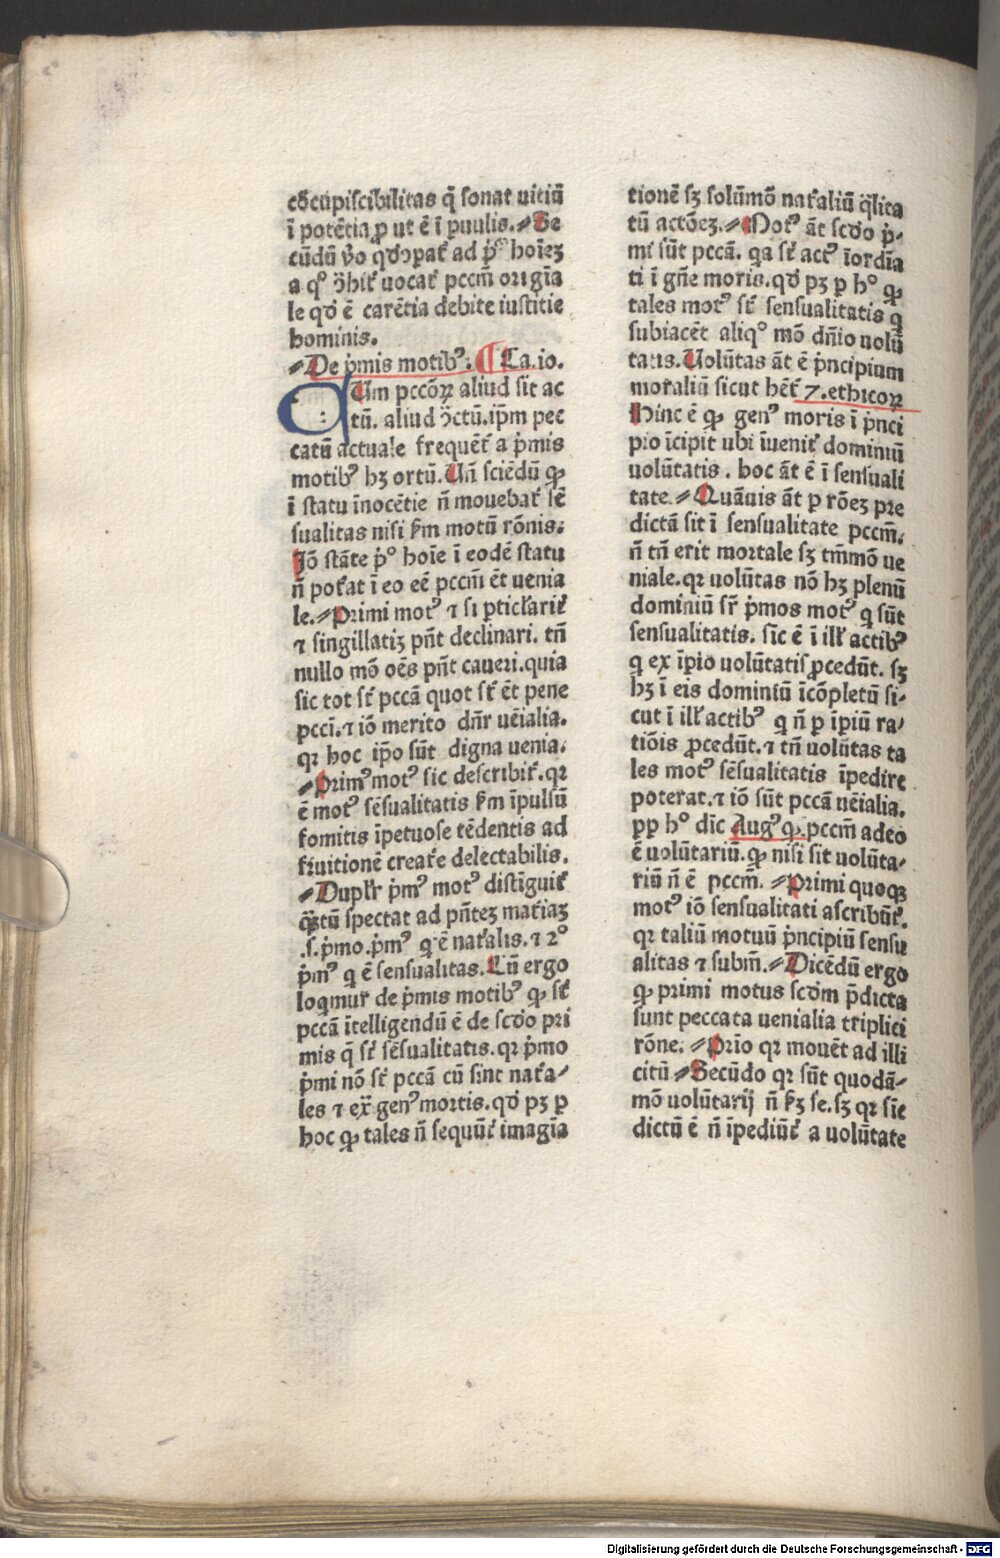 cōcupiscibilitas q̄ sonat uitiū
ī potētia ꝓ ut ē ī puulis.⸗Se
cūdū ṽo qđ ꝯparat̄ ad p̄ꝰ hoīeꝫ
a qͦ ꝯ̄hit̄ uocat̄ pccm̄ origīa
le qđ ē carētia debite iustitie
hominis.
⸗De p̄mis motibꝰ. ¶Ca.io.
CUm pccōꝝ aliud sit ac
tū. aliud ꝯ̄ctū.ip̄m pec
catū actuale frequēt̄ a p̄mis
motibꝰ hꝫ ortū.Uñ sciēdū ꝙ
ī statu īnocētie ñ mouebat̄ sē
sualitas nisi ẜm motū rōnis.
Jō stāte p̄ͦ hoīe ī eodē statu
ñ potat ī eo eē pccm̄ ēt uenia
le.⸗Primi motꝰ ⁊ si ꝑticl'arit̄
⁊ singillatiꝫ pn̄t declinari. tn̄
nullo mō oēs pn̄t caueri.quia
sic tot st̄ pccā quot st̄ ēt pene
pccī.⁊ iō merito dn̄r uēialia.
qꝛ hoc ip̄o sūt digna uenia.
⸗Primꝰ motꝰ sic describit̄.qꝛ
ē motꝰ sēsualitatis ẜm īpulsū
fomitis īpetuose tēdentis ad
fruitionē creatr̄e delectabilis.
⸗Duplr̄ p̄mꝰ motꝰ distīguit̄
q̈tū spectat ad pn̄teꝫ mat̄iaꝫ
.s.p̄mo.p̄mꝰ q ē nat̄alis.⁊ 2ͦ
p̄mꝰ q ē sensualitas.Cū ergo
loqmur̄ de p̄mis motibꝰ ꝙ st̄
pccā ītelligendū ē de scđo pri
mis q̄ st̄ sēsualitatis.qꝛ p̄mo
p̄mi nō st̄ pccā cū sint nat̄a⸗
les ⁊ ex̄ genꝰ mortis.qđ pꝫ ꝑ
hoc ꝙ tales ñ sequūt̄ imagīa
tionē sꝫ solūmō nat̄aliū q̄lita
tū actōeꝫ.⸗Motꝰ āt scđo p̄⸗
mi sūt pccā. qa st̄ actꝰ īordīa
ti ī gn̄e moris.qđ pꝫ ꝑ hͦ ꝙ
tales motꝰ st̄ sensualitatis q
subiacēt aliqͦ mō dn̄io uolū
tatis.Uolūtas āt ē p̄ncipium
moraliū sicut hēt̄ 7.ethicoꝝ
Hinc ē ꝙ genꝰ moris ī p̄nci
pio īcipit ubi īuenit̄ dominiū
uolūtatis. hoc āt ē ī sensuali
tate.⸗Quāuis āt ꝑ rōeꝫ pre
dictā sit ī sensualitate pccm̄.
ñ tn̄ erit mortale sꝫ tm̄mō ue
niale.qꝛ uolūtas nō hꝫ plenū
dominiū sr̄ p̄mos motꝰ q sūt
sensualitatis. sīc ē ī ill' actibꝰ
q ex īpio uolūtatis ꝓcedūt. sꝫ
hꝫ ī eis dominiū īcōpletū si⸗
cut ī ill' actibꝰ q ñ ꝑ īpiū ra/
tiōis ꝓcedūt.⁊ tn̄ uolūtas ta
les motꝰ sēsualitatis īpedire
poterat.⁊ iō sūt pccā uēialia.
ꝓp̄ hͦ dīc Augꝰ ꝙ.pccm̄ adeo
ē uolūtariū.ꝙ nisi sit uolūta⸗
riū ñ ē pccm̄. ⸗Primi quoqꝫ
motꝰ iō sensualitati ascribūt̄.
qꝛ taliū motuū p̄ncipiū sensu
alitas ⁊ subm̄.⸗Dicēdū ergo
ꝙ primi motus scđm p̄dicta
sunt peccata uenialia triplici
rōne. ⸗Prīo qꝛ mouēt ad illi
citū⸗Secūdo qꝛ sūt quodā⸗
mō uolūtarij ñ ẜꝫ se.sꝫ qꝛ sīc
dictū ē ñ īpediūt̄ a uolūtate
Digitalisierung gefördert durch die Deutsche Forschungsgemeinschaft - DFG